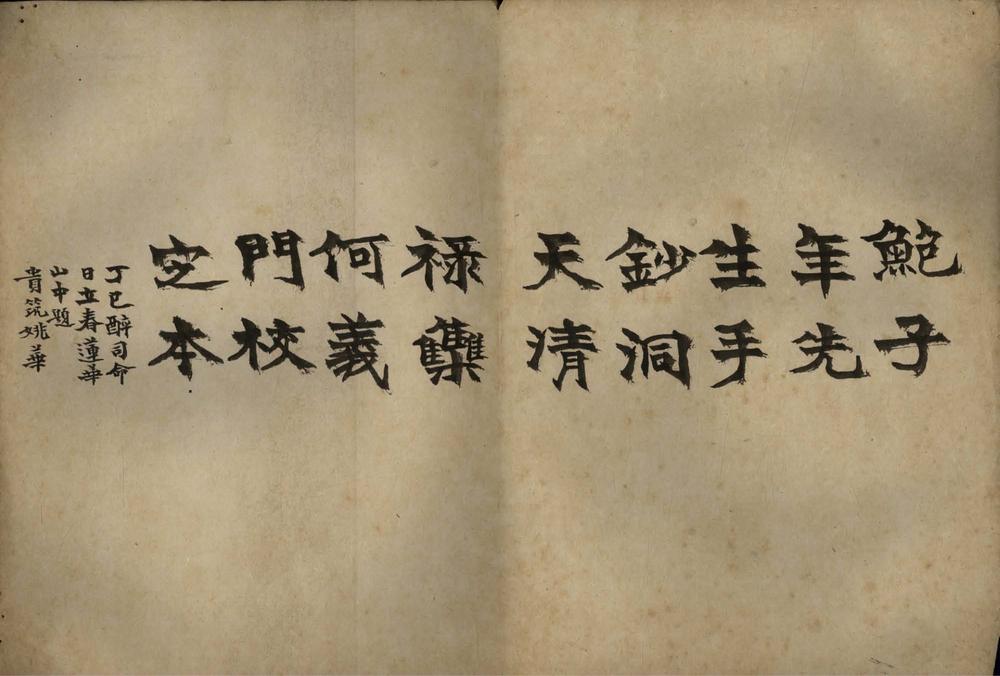 鮑子
年先
生手
鈔洞
天清
祿集
何義
門校
定本
丁巳醉司命
日立春蓮華
山中題
貴筑姚華